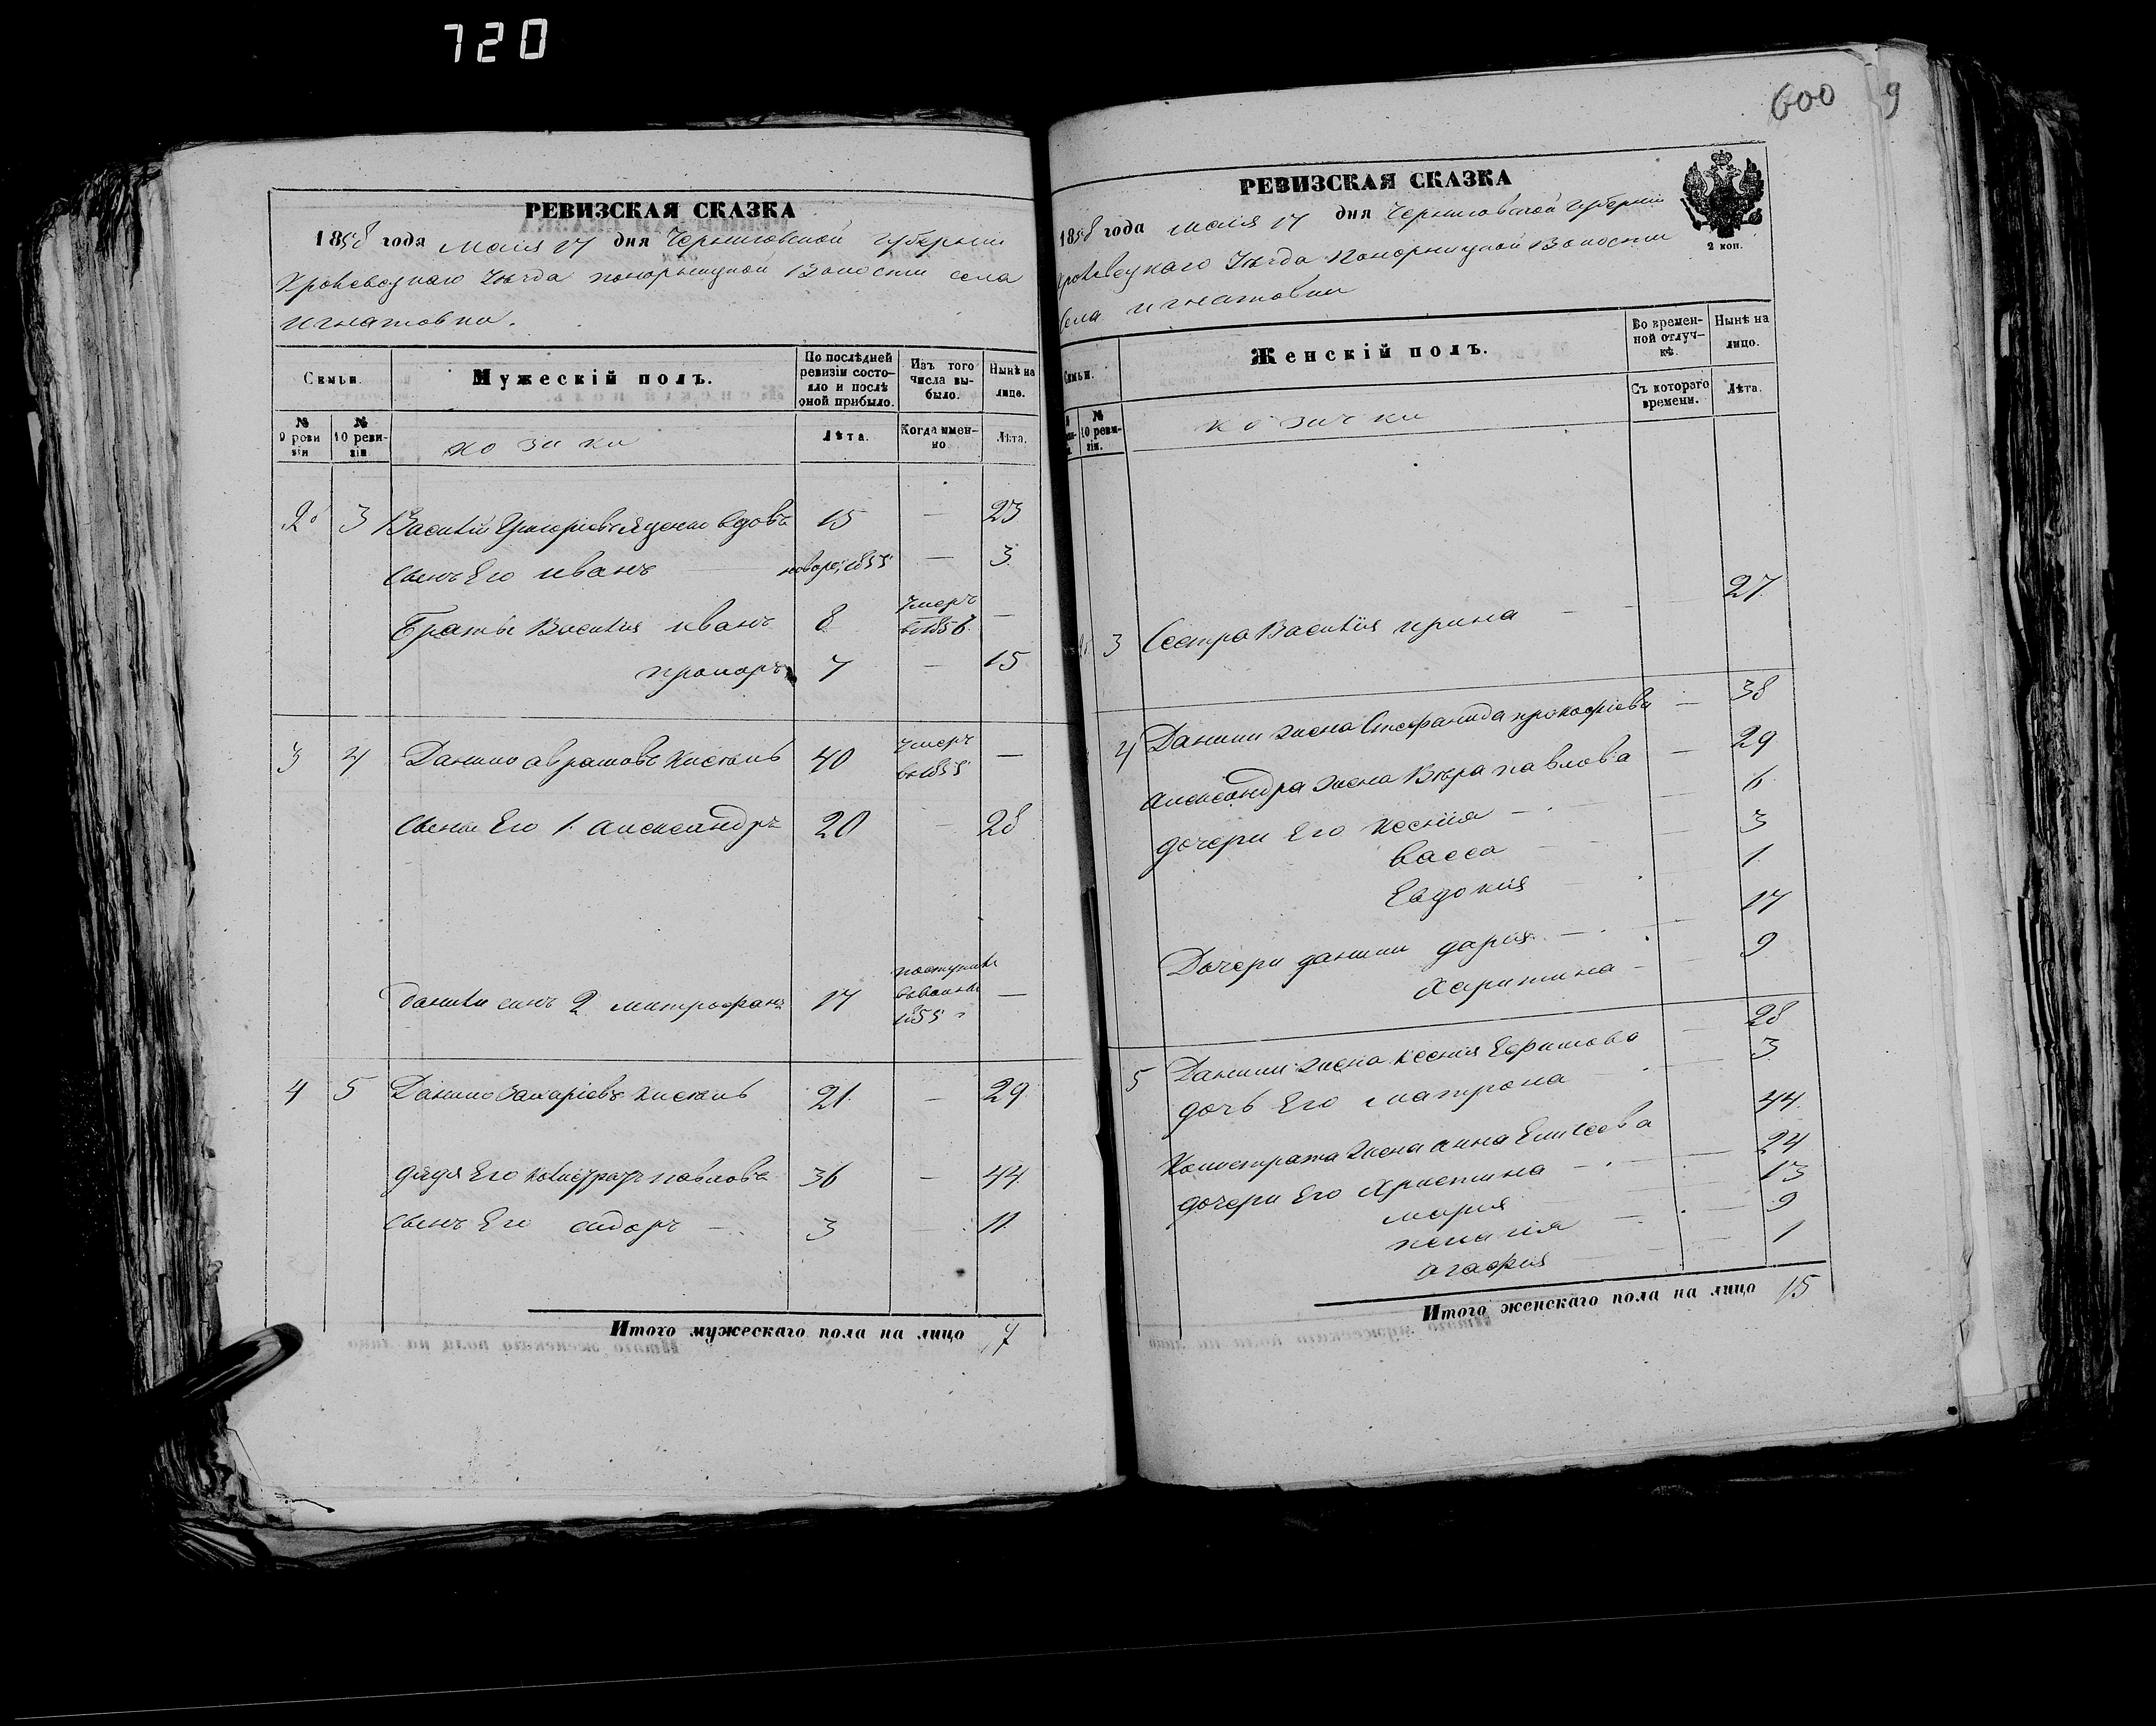 720
РЕВИЗСКАЯ СКАЗКА
1858 года маія 17 дня Черниговской губерніи
Кролевецкаго уѣзда понорницкой Волости села
игнатовки.
Семьи.
Мужескій полъ.
По послѣдней ревизіи состояло и послѣ оной прибыло.
Изъ того числа выбыло.
Нынѣ на лицо.
№ 9 ревизіи
№ 10 ревизіи
козаки
Лѣта.
Когда именно
Лѣта.
2 3 Василій Григоріевъ Яценко вдовъ 15 — 23
сынъ Его иванъ новорож 1855 — 3
Братья Василія иванъ 8 умеръ въ 1856 —
прокоръ 7 — 15
3 4 Данило аврамовъ Кисель 40 умеръ въ 1855 —
сыны Его 1. александръ 20 — 28
данилы сынъ 2 митрофанъ 17 поступилъ 1855 —
4 5 Данило Захаріевъ Кисель 21. — 29.
дядя Его Калистратъ павловъ 36 — 44
сынъ Его сидоръ — 3 11
Итого мужескаго пола на лицо 7
600 9
РЕВИЗСКАЯ СКАЗКА
2 коп.
1858 года маія 17 дня Черниговской губерніи
кролевецкаго Уѣзда Понорницкой Волости
села игнатовки
Семьи.
Женскій полъ.
Во временной отлучкѣ.
Нынѣ на лицо.
№ 10 ревизіи.
козачки
Съ котораго времени.
Лѣта.
3 Сестра Василія ирина — 27.
4 Данилы жена Стефанида прокофіева — 38
александра жена Вѣра павлова — 29
дочери Его Ксенія — 6
васса — 3
Евдокія — 1
Дочери данилы дарія — 17
Харитина — 9
5 Данилы жена Ксенія Ефимова — 28
дочь Его матрона — 3
Калистрата жена анна Елисеева 44.
дочери Его Христина — 24
марія — 13
пелагія — 9
агафія — 1
Итого женскаго пола на лицо 15